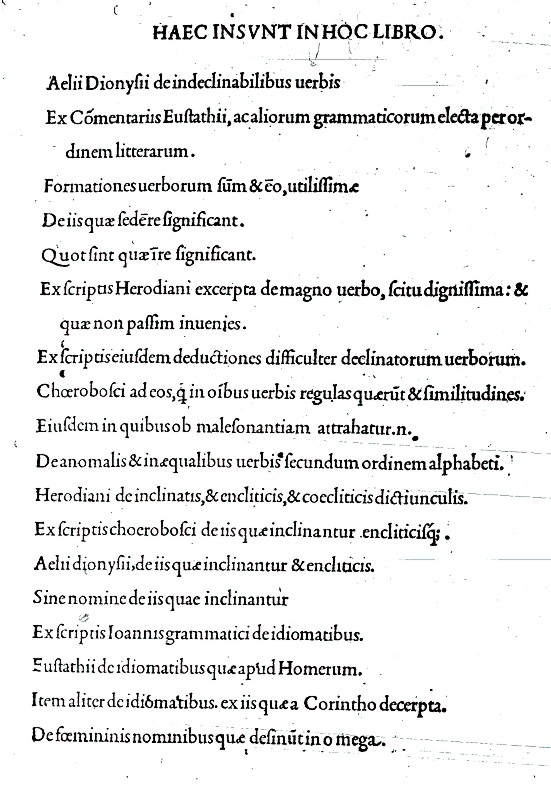 HAEC INSVNT IN HOC LIBRO.
Aelii Dionysii de indeclinabilibus uerbis
Ex Cõmentariis Eustathii, ac aliorum grammaticorum electa per or-
dinem litterarum.
Formationes uerborum sũm & ēo, utilissimæ
De iis quæ sedēre significant.
Quot sint quæ īre significant.
Ex scriptis Herodiani excerpta de magno uerbo, scitu dignissima: &
quæ non passim inuenies.
Ex scriptis eiusdem deductiones difficulter declinatorum uerborum.
Chœrobosci ad eos, q̃ in oĩbus uerbis regulas quærũt & similitudines.
Eiusdem in quibus ob malesonantiam attrahatur.n.
De anomalis & inæqualibus uerbis secundum ordinem alphabeti.
Herodiani de inclinatis, & encliticis, & coecliticis dictiunculis.
Ex scriptis choerobosci de iis quæ inclinantur .encliticisq;.
Aelii dionysii, de iis quæ inclinantur & encliticis.
Sine nomine de iis quae inclinantur
Ex scriptis Ioannis grammatici de idiomatibus.
Eustathii de idiomatibus quæ apud Homerum.
Item aliter de idiomatibus. ex iis quæ a Corintho decerpta.
De fœmininis nominibus quæ desinũt in o mega.